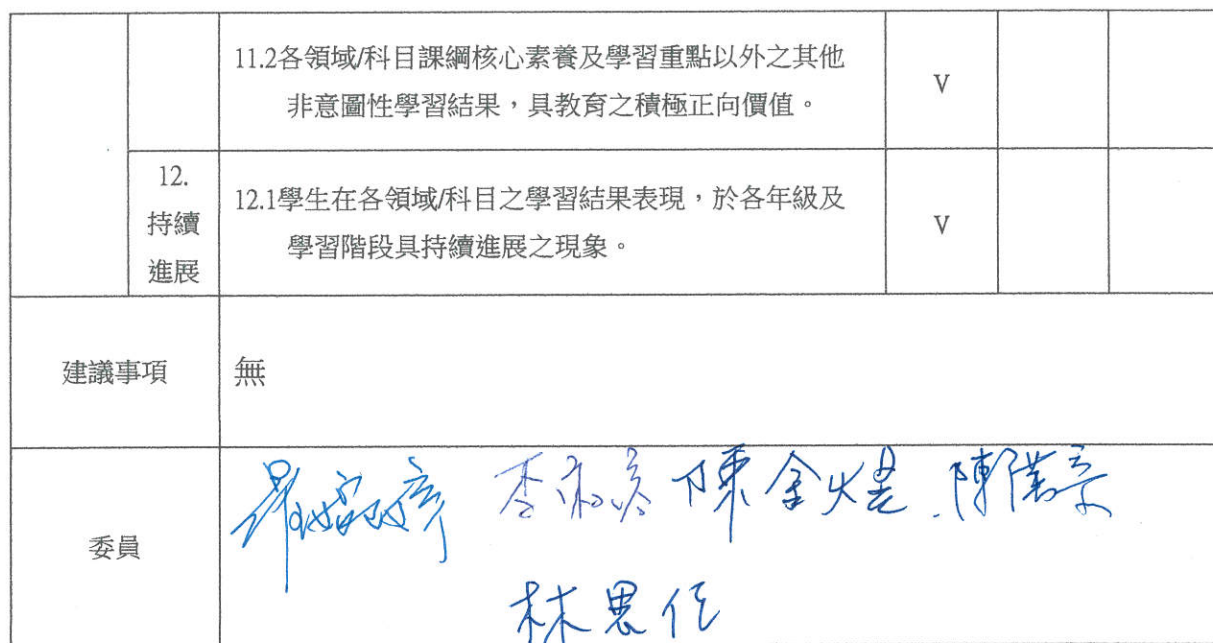 11.2各領域/科目課綱核心素養及學習重點以外之其他
非意圖性學習結果,具教育之積極正向價值。
V
12.
持續
進展
12.1學生在各領域/科目之學習結果表現,於各年級及
學習階段具持續進展之現象。
V
建議事項
無
委員
陳金煌
林思